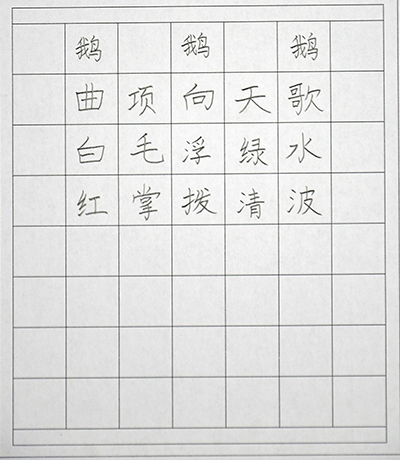 鹅 鹅 鹅
曲项向天歌
白毛浮绿水
红掌拨清波